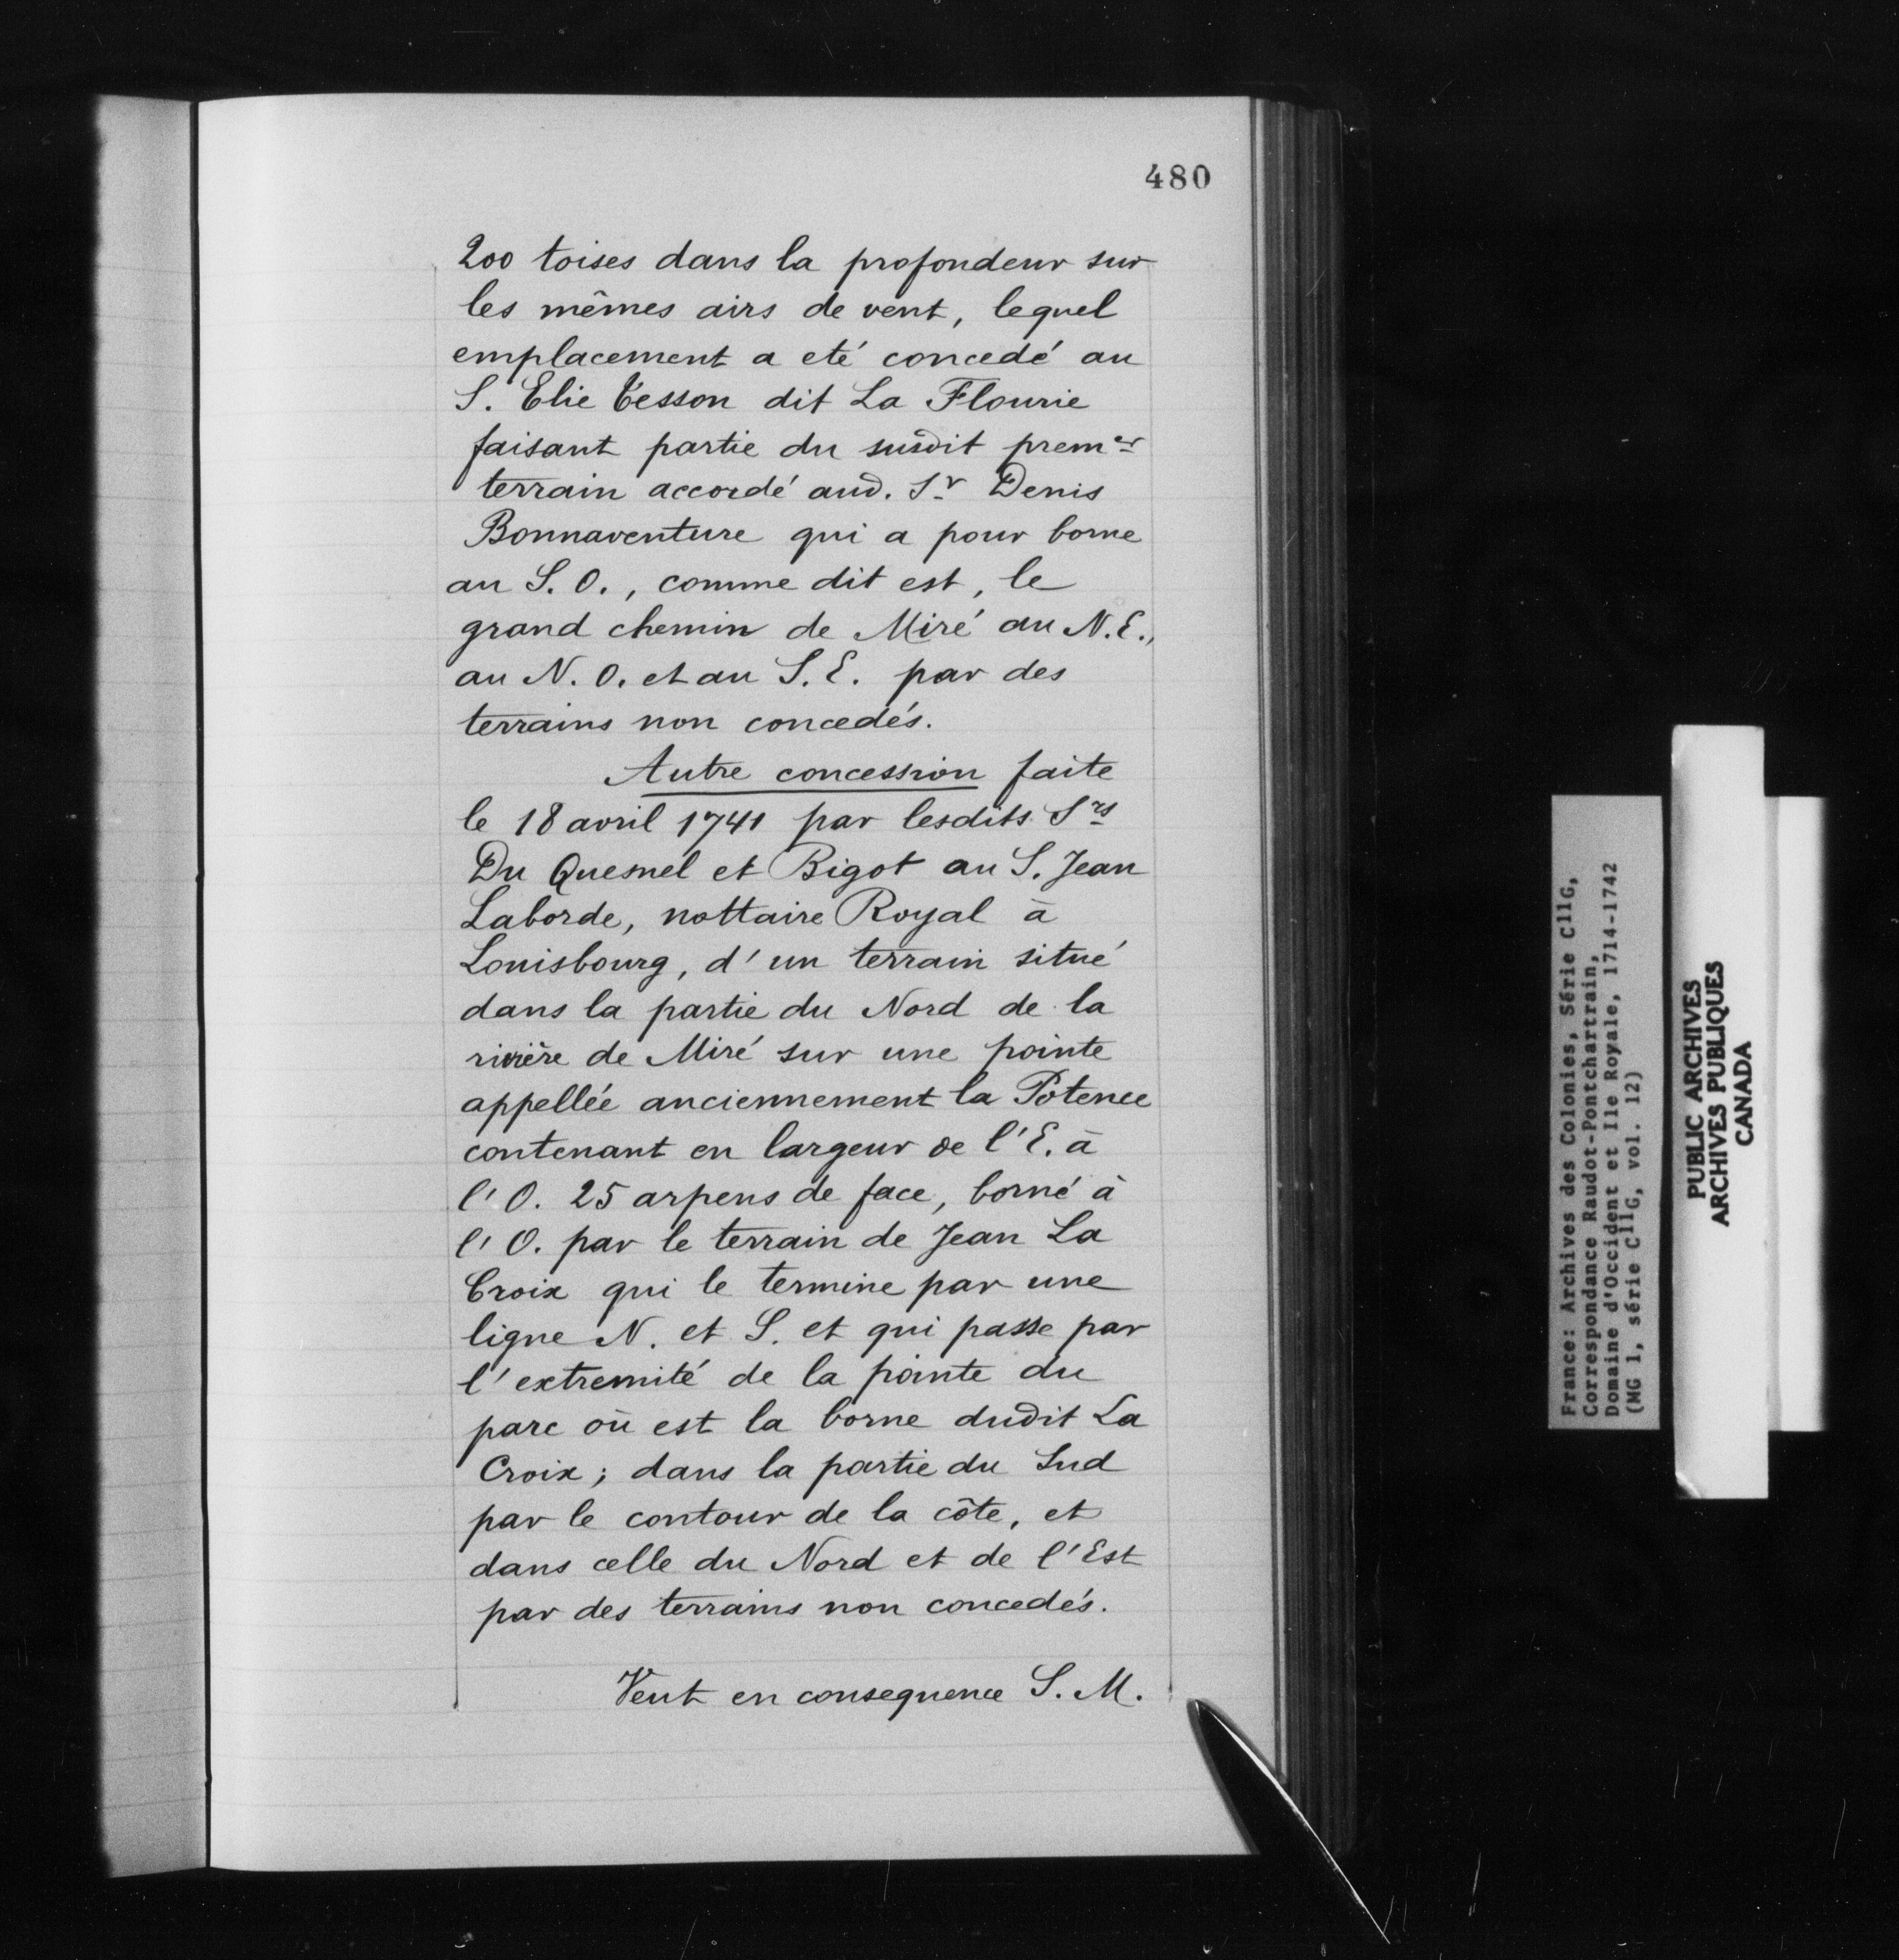 480
200 toises dans la profondeur sur
les mêmes airs de vent, lequel
emplacement a eté concedé au
S. Elie Tesson dit La Flourie
faisant partie du susdit premer
terrain accordé aud. Sr Denis
Bonnaventure qui a pour borne
au S. O., comme dit est, le
grand chemin de Miré au N.E.,
au N. O. et au S. E. par des
terrains non concedés.
Autre concession faite
le 18 avril 1741 par lesdits Srs
Du Quesnel et Bigot au S. Jean
Laborde, nottaire Royal à
Louisbourg, d'un terrain situé
dans la partie du Nord de la
rivière de Miré sur une pointe
appellée anciennement la Potence
contenant en largeur de l'E. à
l'O. 25 arpens de face, borné à
l'O. par le terrain de Jean La
Croix qui le termine par une
ligne N. et S. et qui passe par
l'extremité de la pointe du
parc où est la borne dudit La
Croix; dans la partie du Sud
par le contour de la côte, et
dans celle du Nord et de l'Est
par des terrains non concedés.
Veut en consequence S. M.
France: Archives des Colonies, Série C11G,
Correspondance Raudot-Pontchartrain,
Domaine d'Occident et Ile Royale, 1714-1742
(MG 1, série C11G, vol. 12)
PUBLIC ARCHIVES
ARCHIVES PUBLIQUES
CANADA